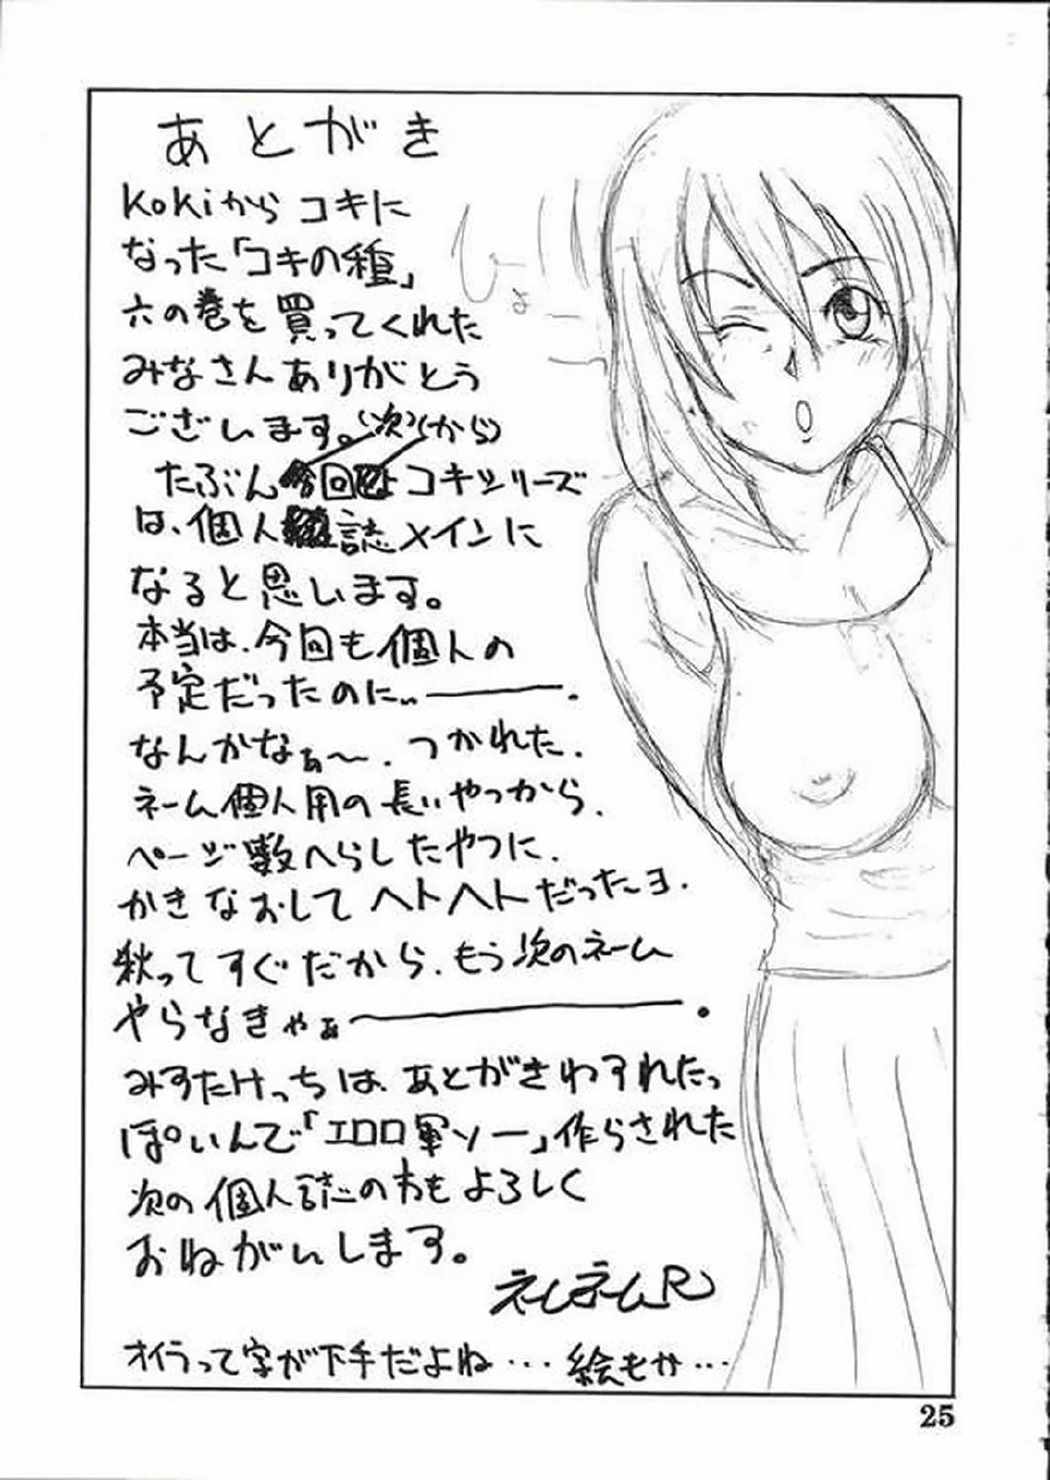 あとがき
kokiからコキに
なった「コキの種」
六の巻を買ってくれた
みなさんありがとう
ございます。(次)(から)
たぶん今回は コキシリーズ
は、個人誌メインに
なると思います。
本当は、今回も個人の
予定だったのに…――.
なんかなぁ〜. つかれた.
ネーム個人用の長いやつから、
ページ数へらしたやつに、
かきなおしてヘトヘトだった〜ヨ.
秋ってすぐだから、もう次のネーム
やらなきゃぁ〜――.
みすたけっちは、あとがきわすれたっ
ぽいんで「エロロ軍ソー」作らされた
次の個人誌のわもよろしく
おねがいします。
ネムネムR
オイラって字が下手だよね… 絵もか…
ひょ
25